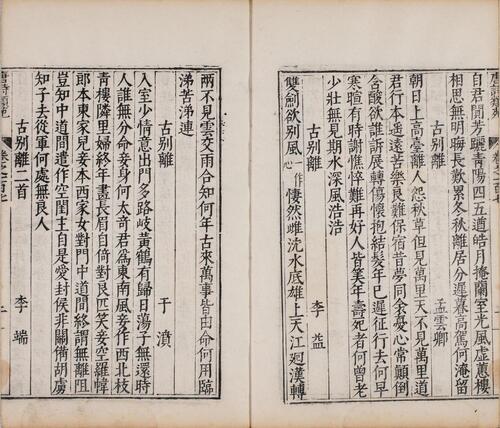 自君間芳躅青陽四五遒皓月掩蘭室光風虛蕙樓
相思無明晦長歎累冬秋離居分遲暮高駕何淹留
古別離　孟雲卿
朝日上高臺離人怨秋草但見萬里天不見萬里道
君行本遙遠苦樂良難保宿昔夢同衾憂心常顛倒
含酸欲誰訴展轉傷懷抱結髮年已遲征行去何早
寒暄有時謝憔悴難再好人皆筭年壽死者何曾老
少壯無見期水深風浩浩
古別離　李益
雙劍欲別風一作心悽然雌沈水底雄上天江迴漢轉
兩不見雲交雨合知何年古來萬事皆由命何用臨
涕苦涕連
古別離　于濆
入室少情意出門多路岐黃鶴有歸日蕩子無還時
人誰無分命妾身何太奇君爲東南風妾作西北枝
青樓隣里婦終年晝長眉自倚對良匹笑妾空羅幃
郎本東家兒妾本西家女對門中道間終謂無離阻
豈知中道間遣作空閨主自是愛封侯非關備胡虜
知子去從軍何處無良人
古別離二首　李端